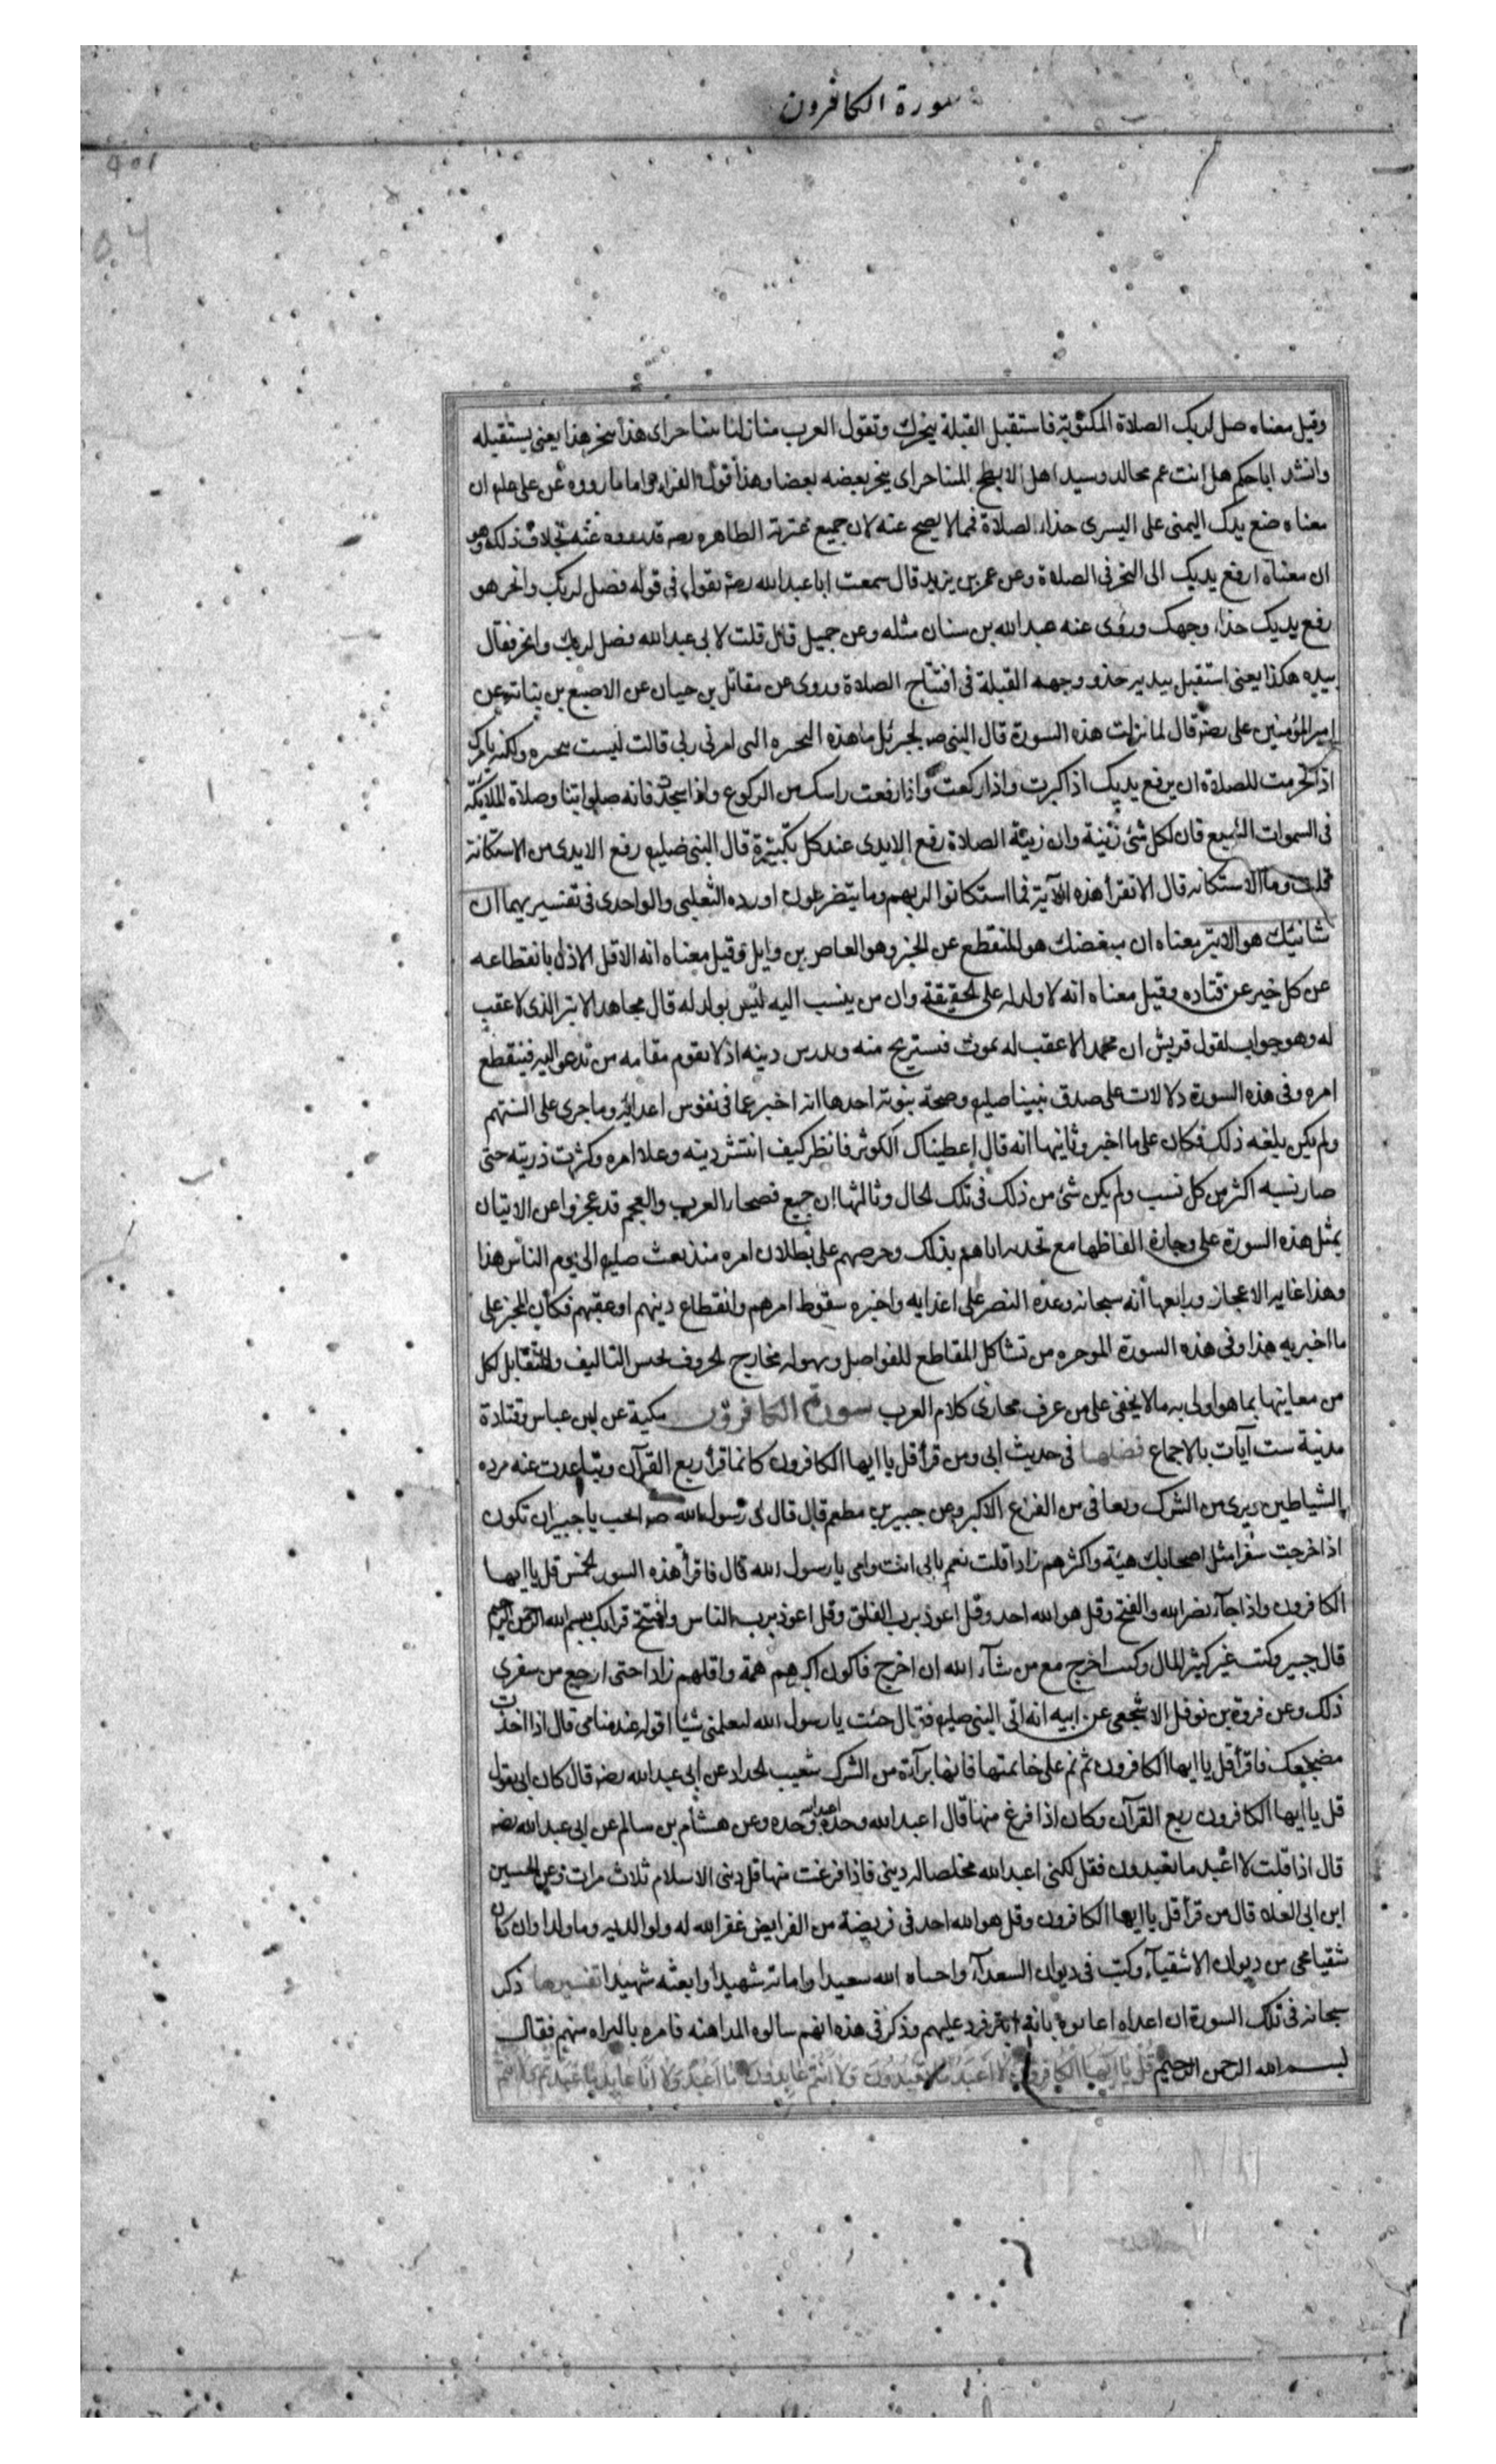 سورة الكافرون
وقيل معناه صل لربك الصلاة المكتوبة فاستقبل القبلة بنحرك وتقول العرب منازلنا تتناحر اى هذا ينحر هذا يعنى يستقبله
وانشد اباحكم هل انت عم مجالد وسيد اهل الابطح المتناحر اى ينحر بعضه بعضا وهذا قول الفراء واما ما رووه عن على علم ان
معناه ضع يدك اليمنى على اليسرى حذاء الصلاة فمما لا يصح عنه لان جميع عترته الطاهره رووه عنه بخلاف ذلك وهو
ان معناه ارفع يديك الى النحر فى الصلاة وعن عمر بن يزيد قال سمعت ابا عبد الله رضه يقول فى قوله فصل لربك وانحر هو
رفع يديك حذاء وجهك وروى عنه عبد الله بن سنان مثله وعن جميل قال قلت لابى عبد الله فصل لربك وانحر فقال
بيده هكذا يعنى استقبل بيديه حذو وجهه القبلة فى افتتاح الصلاة وروى عن مقاتل بن حيان عن الاصبغ بن نباته عن
امير المؤمنين على رضه قال لما نزلت هذه السورة قال النبى ص لجبرئل ما هذه النحره التى امرنى ربى قالت ليست بنحره ولكنه يامرك
اذا تحرمت للصلاة ان يرفع يديك اذا كبرت واذا ركعت واذا رفعت راسك من الركوع واذا سجدت فانه صلواتنا وصلاة الملايكة
فى السموات السبع فان لكل شئ زينة وان زينة الصلاة رفع الايدى عند كل تكبيرة قال النبى صليه رفع الايدى من الاستكانة
قلت وما الاستكانه قال الا تقرأ هذه الآية فما استكانوا لربهم وما يتضرعون اورده الثعلبى والواحدى فى تفسيريهما ان
شانيئك هو الابتر معناه ان مبغضك هو المنقطع عن الخير وهو العاص بن وايل وقيل معناه انه الاقل الاذل بانقطاعه
عن كل خير عن قتاده وقيل معناه انه لا ولد له على الحقيقة وان من ينسب اليه ليس بولد له قال مجاهد الابتر الذى لا عقب
له وهو جواب لقول قريش ان محمدا لا عقب له يموت فنستريح منه ويدرس دينه اذ لا يقوم مقامه من تدعو اليه فينقطع
امره وفى هذه السورة دلالات على صدق نبينا صليه وصحة نبوته احدها انه اخبر عما فى نفوس اعدائه وما جرى على السنتهم
ولم يكن بلغه ذلك فكان على ما اخبر وثانيها انه قال اعطيناك الكوثر فانظر كيف انتشر دينه وعلا امره وكثرت ذريته حتى
صار نسبه اكثر من كل نسب ولم يكن شئ من ذلك فى تلك الحال وثالثها ان جميع فصحاء العرب والعجم قد عجزوا عن الاتيان
بمثل هذه السورة على وجازة الفاظها مع تحديه اياهم بذلك وحرصهم على بطلان امره منذ بعث صليه الى يوم الناس هذا
وهذا غاية الاعجاز ورابعها انه سبحانه وعده النصر على اعدايه واخبره سقوط امرهم وانقطاع دينهم او عقبهم فكان المخبر على
ما اخبر به هذا وفى هذه السورة الموجزه من تشاكل المقاطع للفواصل وسهوله مخارج الحروف لحسن التاليف والتقابل لكل
من معاينها بما هو اولى به ما لا يخفى على من عرف مجارى كلام العرب سورة الكافرون مكية عن ابن عباس وقتادة
مدنية ست آيات بالاجماع فضلها فى حديث ابى ومن قرأ قل يا ايها الكافرون كانما قرأ ربع القرآن وتباعدت عنه مرده
الشياطين وبرى من الشرك ويعافى من الفزع الاكبر وعن جبير بن مطعم قال قال لى رسول الله ص اتحب يا جبير ان تكون
اذا خرجت سفرا مثل اصحابك هيئة واكثرهم زادا قلت نعم بابى انت وامى يا رسول الله قال فاقرأ هذه السور الخمس قل يا ايها
الكافرون واذا جآء نصر الله والفتح وقل هو الله احد وقل اعوذ برب الفلق وقل اعوذ برب الناس وافتتح قرآتك ببسم الله الرحمن الرحيم
قال جبير وكنت غير كثير المال وكنت اخرج مع من شآء الله ان اخرج فاكون اكبرهم همة واقلهم زادا حتى ارجع من سفرى
ذلك وعن فروة بن نوفل الاشجعى عن ابيه انه اتى النبى صليه فقال جئت يا رسول الله لتعلمنى شيئا اقوله عند منامى قال اذا اخذت
مضجعك فاقرأ قل يا ايها الكافرون ثم نم على خاتمتها فانها برآءة من الشرك شعيب الحداد عن ابى عبد الله رضه قال كان ابى يقول
قل يا ايها الكافرون ربع القرآن وكان اذا فرغ منها قال اعبد الله وحده اعبد الله وحده وعن هشام بن سالم عن ابى عبد الله رضه
قال اذا قلت لا اعبد ما تعبدون فقل لكنى اعبد الله مخلصا له دينى فاذا فرغت منها قل دينى الاسلام ثلاث مرات وعن الحسين
ابن ابى العلاء قال من قرأ قل يا ايها الكافرون وقل هو الله احد فى فريضة من الفرايض غفر الله له ولوالديه وما ولدا وان كان
شقيا محى من ديوان الاشقيآء وكتب فى ديوان السعدآء واحياه الله سعيدا واماته شهيدا وابعثه شهيدا تفسيرها ذكر
سبحانه فى تلك السورة ان اعداه اعابوه بانه ابتر فرد عليهم وذكر فى هذه انهم سالوه المداهنه فامره بالبراه منهم فقال
بسم الله الرحمن الرحيم قل يا ايها الكافرون لا اعبد ما تعبدون ولا انتم عابدون ما اعبد ولا انا عابد ما عبدتم ولا انتم